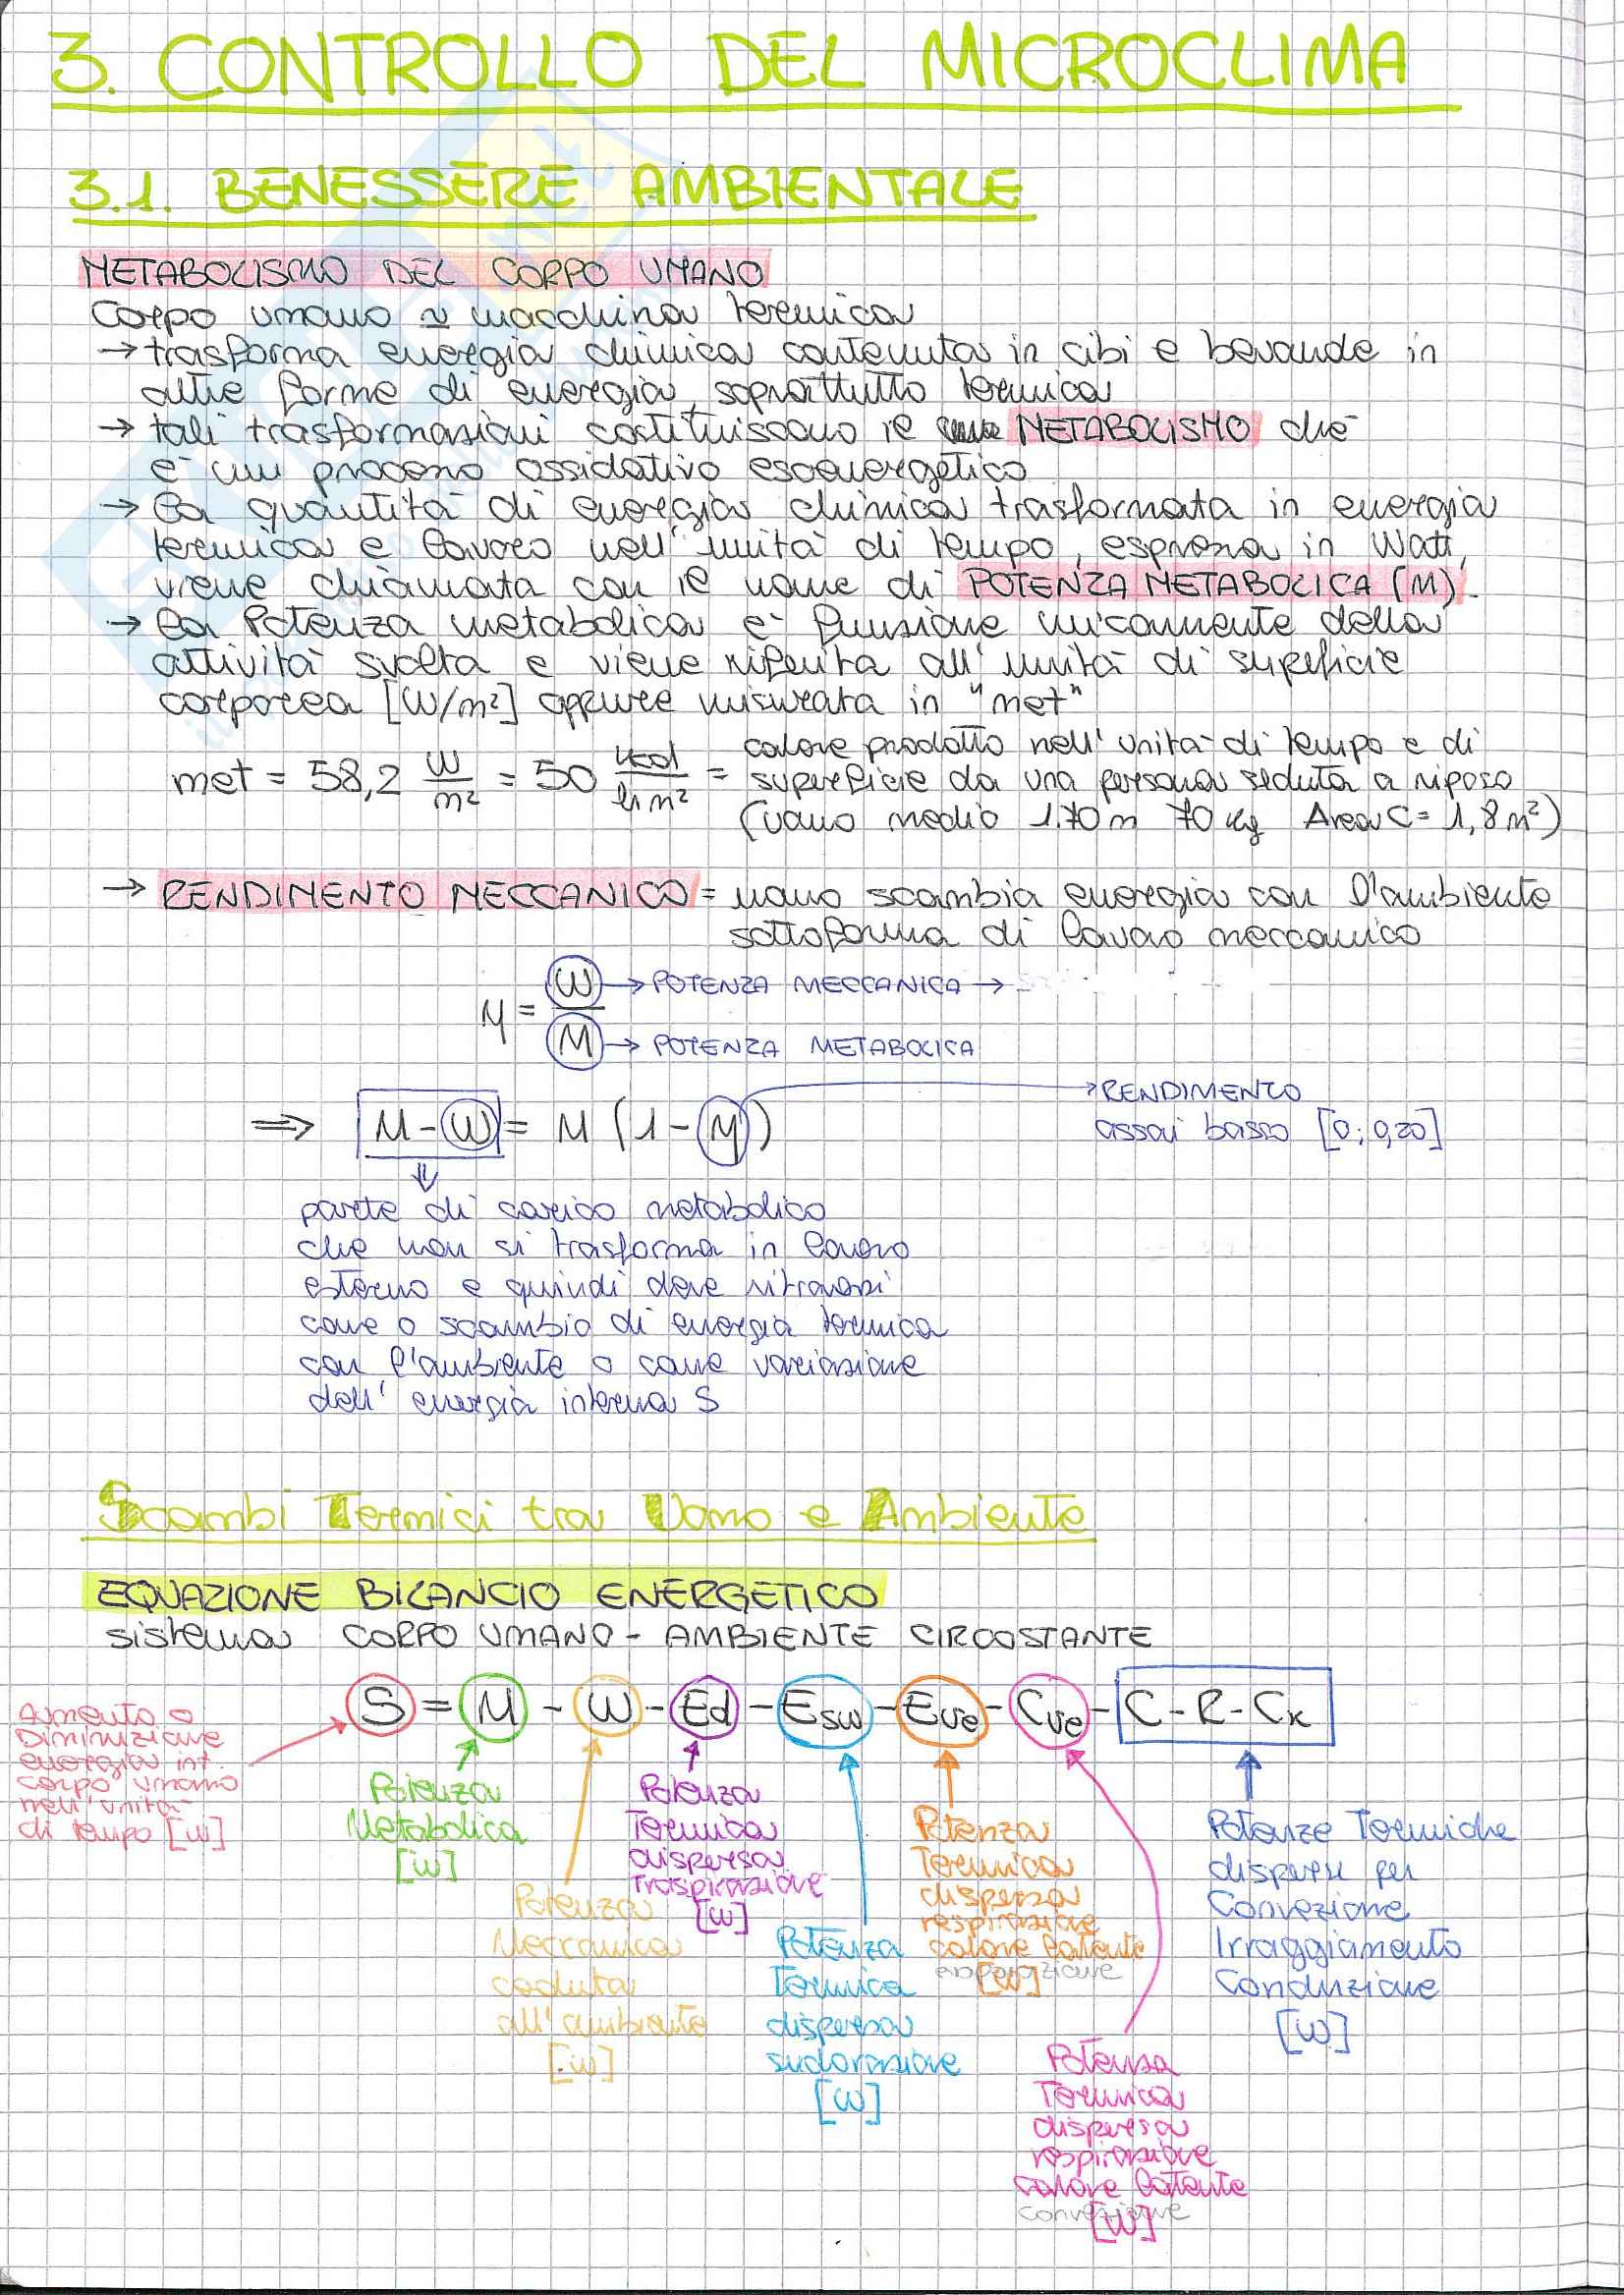 3. CONTROLLO DEL MICROCLIMA
3.1. BENESSERE AMBIENTALE
METABOLISMO DEL CORPO UMANO
Corpo umano ≃ macchina termica
→ trasforma energia chimica contenuta in cibi e bevande in
altre forme di energia, soprattutto termica
→ tali trasformazioni costituiscono il METABOLISMO che
è un processo ossidativo esoenergetico
→ la quantità di energia chimica trasformata in energia
termica e lavoro nell'unità di tempo, espressa in Watt,
viene chiamata con il nome di POTENZA METABOLICA (M).
→ la Potenza metabolica è funzione unicamente della
attività svolta e viene riferita all'unità di superficie
corporea [W/m²] oppure misurata in "met"
met = 58,2 W/m² = 50 kcal/h m² = calore prodotto nell'unità di tempo e di
superficie da una persona seduta a riposo
(uomo medio 1.70 m 70 kg Area C = 1,8 m²)
→ RENDIMENTO MECCANICO = uomo scambia energia con l'ambiente
sottoforma di lavoro meccanico
η = W/M
W → POTENZA MECCANICA →
M → POTENZA METABOLICA
⇒ M - W = M (1 - η)
→ RENDIMENTO
assai basso [0; 0,20]
parte di carico metabolico
che non si trasforma in lavoro
esterno e quindi deve ritrovarsi
come o scambio di energia termica
con l'ambiente o come variazione
dell'energia interna S
Scambi Termici tra Uomo e Ambiente
EQUAZIONE BILANCIO ENERGETICO
sistema CORPO UMANO - AMBIENTE CIRCOSTANTE
S = M - W - Ed - Esw - Eve - Cve - C - R - Ck
Aumento o
Diminuzione
energia int.
corpo umano
nell'unità
di tempo [W]
Potenza
Metabolica
[W]
Potenza
Meccanica
ceduta
all'ambiente
[W]
Potenza
Termica
dispersa
traspirazione
[W]
Potenza
Termica
dispersa
sudorazione
[W]
Potenza
Termica
dispersa
respirazione
calore latente
evaporazione
[W]
Potenza
Termica
dispersa
respirazione
calore latente
convezione
[W]
Potenze Termiche
disperse per
Convezione
Irraggiamento
Conduzione
[W]